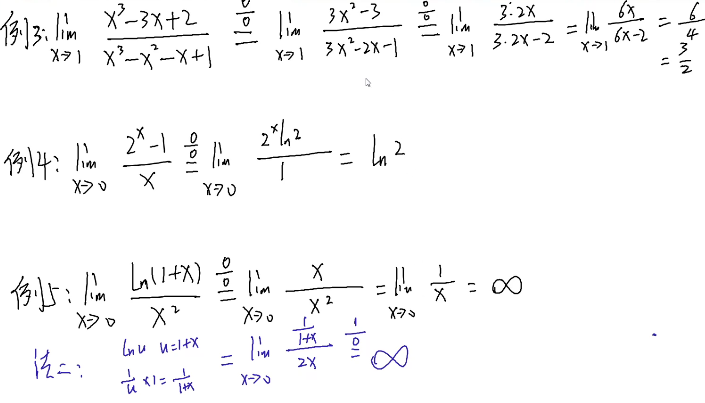 例3: lim x→1 (x³-3x+2)/(x³-x²-x+1) =(0/0) lim x→1 (3x²-3)/(3x²-2x-1) =(0/0) lim x→1 (3·2x)/(3·2x-2) = lim x→1 6x/(6x-2) = 6/4
= 3/2
例4: lim x→0 (2ˣ-1)/x =(0/0) lim x→0 (2ˣln2)/1 = ln2
例5: lim x→0 ln(1+x)/x² =(0/0) lim x→0 x/x² = lim x→0 1/x = ∞
法二: lnu u=1+x
1/u ×1 = 1/(1+x)
= lim x→0 (1/(1+x))/(2x) =(1/0) ∞